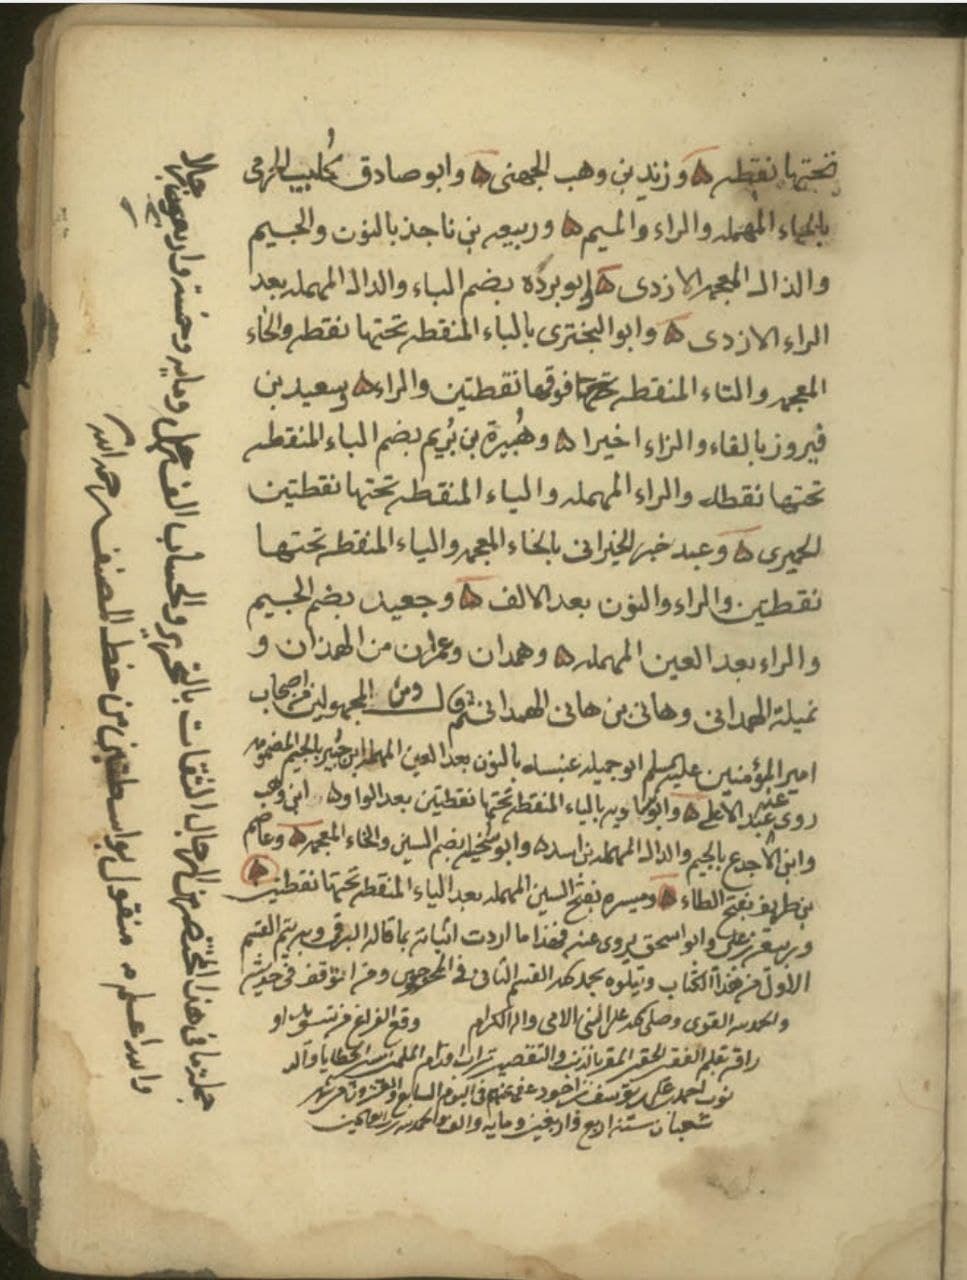 تحتها نقطه وزيد بن وهب الجهني وابو صادق كُليب الجرمى
بالحاء المهمله والراء والميم وربيعه بن ناجذ بالنون والجيم
والذال المعجمه الازدى وابو بردة بضم الباء والدال المهمله بعد
الراء الازدى وابو البخترى بالباء المنقطه تحتها نقطه والخاء
المعجمه والتاء المنقطه فوقها نقطتين والراء وسعيد بن
فيروز بالفاء والزاء اخيرا وهُبيرة بن بُريم بضم الباء المنقطه
تحتها نقطه والراء المهمله والياء المنقطه تحتها نقطتين
الحميرى وعبد خير الخيرانى بالخاء المعجمه والياء المنقطه تحتها
نقطتين والراء والنون بعد الالف وجعيد بضم الجيم
والراء بعد العين المهمله وهمدان وعمران من الهمدان و
نميلة الهمدانى وهانى بن هانى الهمدانى ثم قال ومن المجهولين من اصحاب
امير المؤمنين عليه السلم ابو جميله عنبسه بالنون بعد العين المهمله ابن جُبير بالجيم المضمومه
روى عنه عبد الاعلى بالياء المنقطه تحتها نقطتين بعد الواو
وابن الاجدع بالجيم والدال المهمله بن اسد وابو سُخيله بضم السين والخاء المعجمه وعاصم
بن طريف بفتح الطاء وميسره بفتح السين المهمله بعد الياء المنقطه تحتها نقطتين
وابو اسحق يروى عنه فهذا ما اردت اثباته مما قاله البرقى وبه يتم القسم
الاول من هذا الكتاب ويتلوه بحمد الله القسم الثانى فى المجروحين ومن اتوقف فى حديثه
والحمد لله القوى وصلى الله على النبى الامى واله الكرام وقع الفراغ من تسويد
بقلم الفقير الحقير المقر بالذنب والتقصير تراب اقدام
فى اليوم السابع والعشرون من شهر
شعبان سنه اربع واربعين ومايه والف والحمد لله رب العالمين
جملة ما فى هذا المختصر من الرجال الثقات بالتحرير والحساب الف رجل ومايه وخمسة واربعون رجلا
والله اعلم منقول بواسطتين من خط المصنف رحمه الله